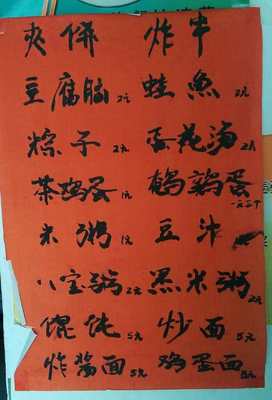 夾餅 炸串
豆腐腦2元 蛙魚2元
粽子2元 蛋花湯2元
茶鸡蛋1元 鹌鹑蛋一元三个
米粥1元 豆汁
八宝粥2元 黑米粥2元
馄饨5元 炒面5元
炸酱面5元 鸡蛋面5元